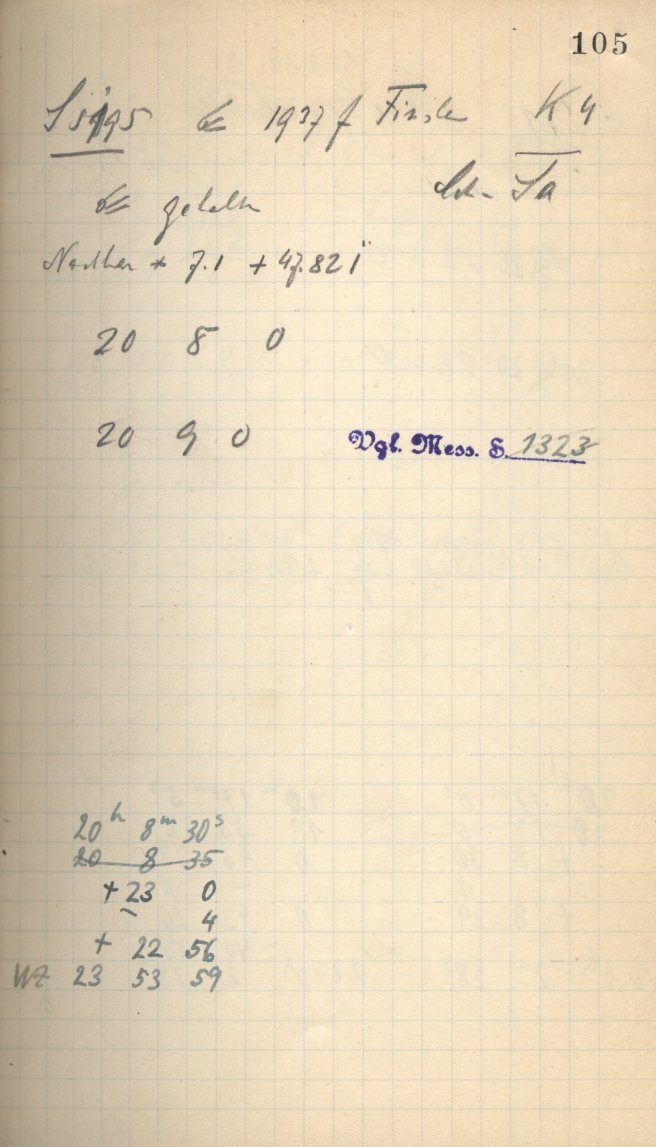 105
S 5195 ☄ 1937 f Finsler K 4
☄ gehalten
Nachbar * 7.1 + 47.821
20 8 0
20 9 0
Vgl. Mess. S. 1323
20h 8m 30s
20 8 35
+ 23 0
− 4
+ 22 56
WZ 23 53 59